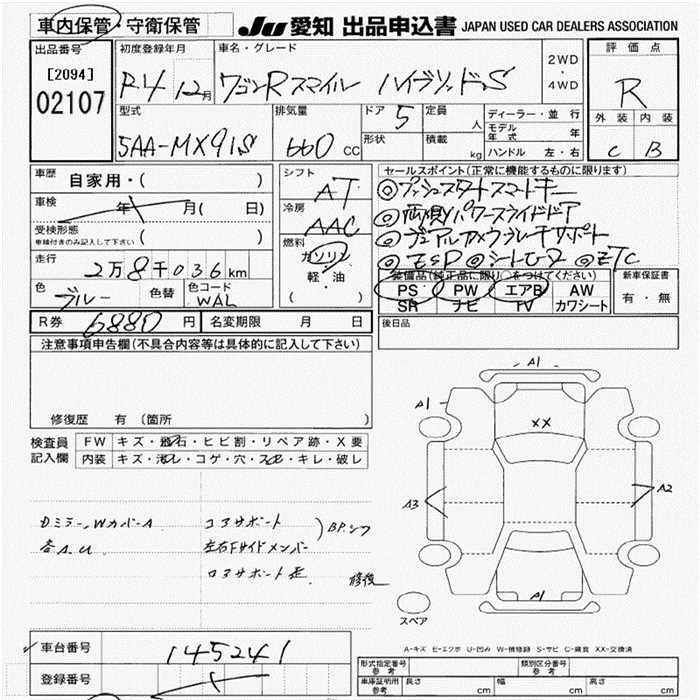 車内保管・守衛保管
JU 愛知 出品申込書 JAPAN USED CAR DEALERS ASSOCIATION
出品番号
[2094]
02107
初度登録年月
R4 12月
車名・グレード
ワゴンRスマイル ハイブリッドS
2WD
・
4WD
評価点
R
外装 内装
C B
型式
5AA-MX91S
排気量
660 CC
ドア 5
形状
定員 人
積載 kg
ディーラー・並行
モデル年式 年
ハンドル 左・右
車歴 自家用・( )
車検 年 月( 日)
受検形態
車検付きのみ記入して下さい ( )
走行 2万8千036km
色 ブルー 色替 色コード WAL
シフト AT
冷房 AAC
燃料 ガソリン
軽・油
( )
セールスポイント(正常に機能するものに限ります)
◎プッシュスタートスマートキー
◎両側パワースライドドア
◎デュアルカメラブレーキサポート
◎ESP ◎シートヒーター ◎ETC
装備品(純正品に限り○をつけてください)
PS PW エアB AW
SR ナビ TV カワシート
新車保証書
有・無
R券 6880 円 名変期限 月 日
後日品
注意事項申告欄(不具合内容等は具体的に記入して下さい)
修復歴 有 (箇所 )
検査員 FW キズ・飛石・ヒビ割・リペア跡・X要
記入欄 内装 キズ・汚レ・コゲ・穴・スレ・キレ・破レ
DミラーWカバーA コアサポート
各A.U 左右Fサイドメンバー
ロアサポート 修後
A1
A1
XX
A3
A2
A1
スペア
A-キズ E-エクボ U-凹み W-補修跡 S-サビ C-腐食 XX-交換済
車台番号 145241
登録番号
形式指定番号 参考
類別区分番号 参考
車庫証明用 参考 長さ cm 幅 cm 高さ cm